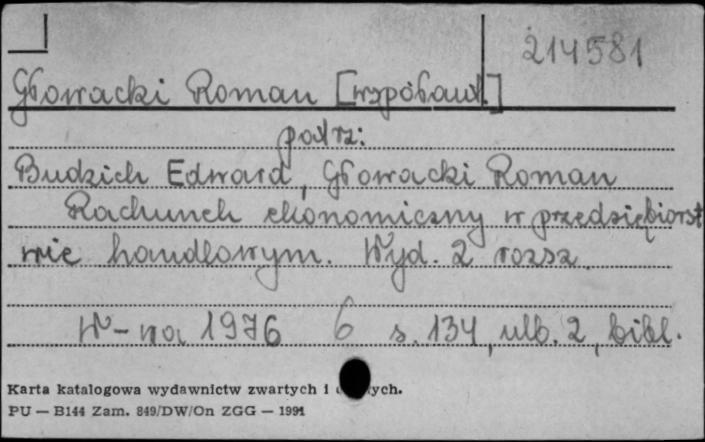 214581
Głowacki Roman [współaut.]
patrz:
Budzich Edward, Głowacki Roman
Rachunek ekonomiczny w przedsiębiorst
wie handlowym. Wyd. 2 rozsz.
W-wa 1976 6 s. 134, ulb. 2, bibl.
Karta katalogowa wydawnictw zwartych i
PU — B144 Zam. 849/DW/On ZGG — 1991